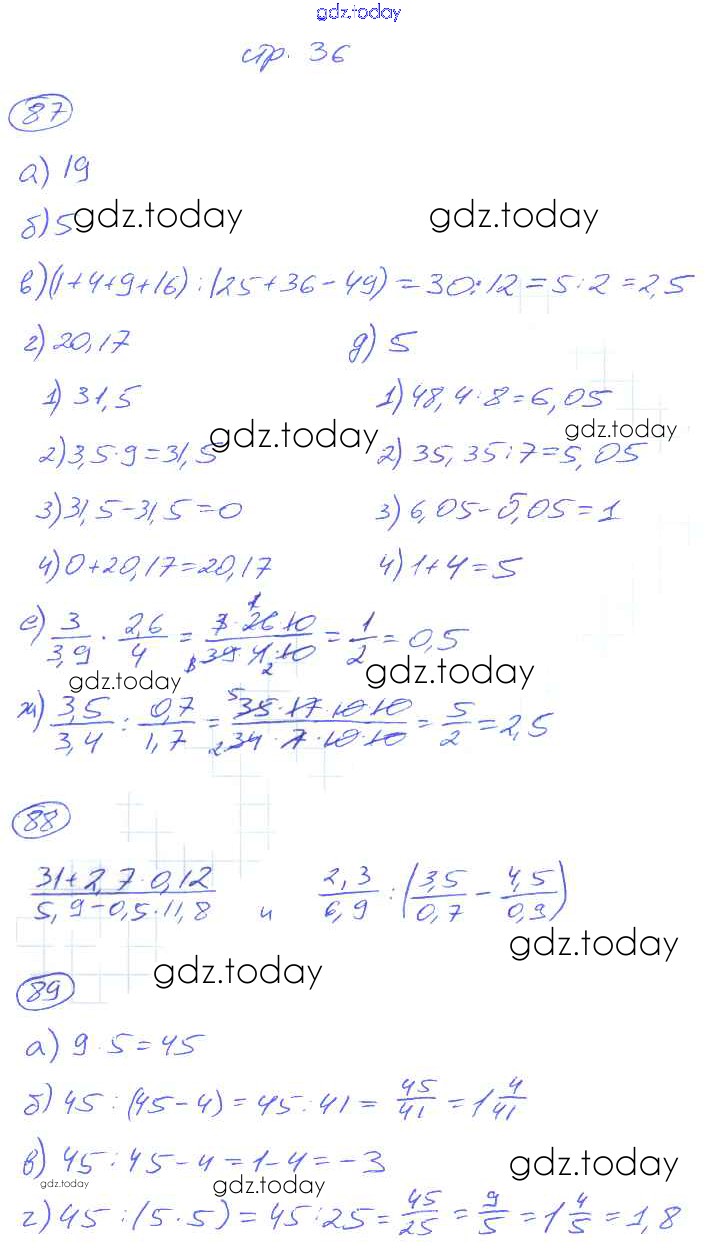 gdz.today
стр. 36
87
а) 19
б) 5
gdz.today gdz.today
в) (1+4+9+16) : (25+36-49) = 30:12 = 5:2 = 2,5
г) 20,17 д) 5
1) 31,5 1) 48,4:8=6,05
gdz.today gdz.today
2) 3,5·9=31,5 2) 35,35:7=5,05
3) 31,5-31,5=0 3) 6,05-5,05=1
4) 0+20,17=20,17 4) 1+4=5
е) 3/3,9 · 2,6/4 = 3·26·10/39·4·10 = 1/2 = 0,5
gdz.today gdz.today
ж) 3,5/3,4 : 0,7/1,7 = 35·17·10·10/34·7·10·10 = 5/2 = 2,5
88
31+2,7·0,12/5,9-0,5·11,8 и 2,3/6,9 : (3,5/0,7 - 4,5/0,9)
gdz.today gdz.today
89
а) 9·5=45
б) 45 : (45-4) = 45:41 = 45/41 = 1 4/41
в) 45:45-4=1-4=-3
gdz.today gdz.today gdz.today
г) 45 : (5·5) = 45:25 = 45/25 = 9/5 = 1 4/5 = 1,8